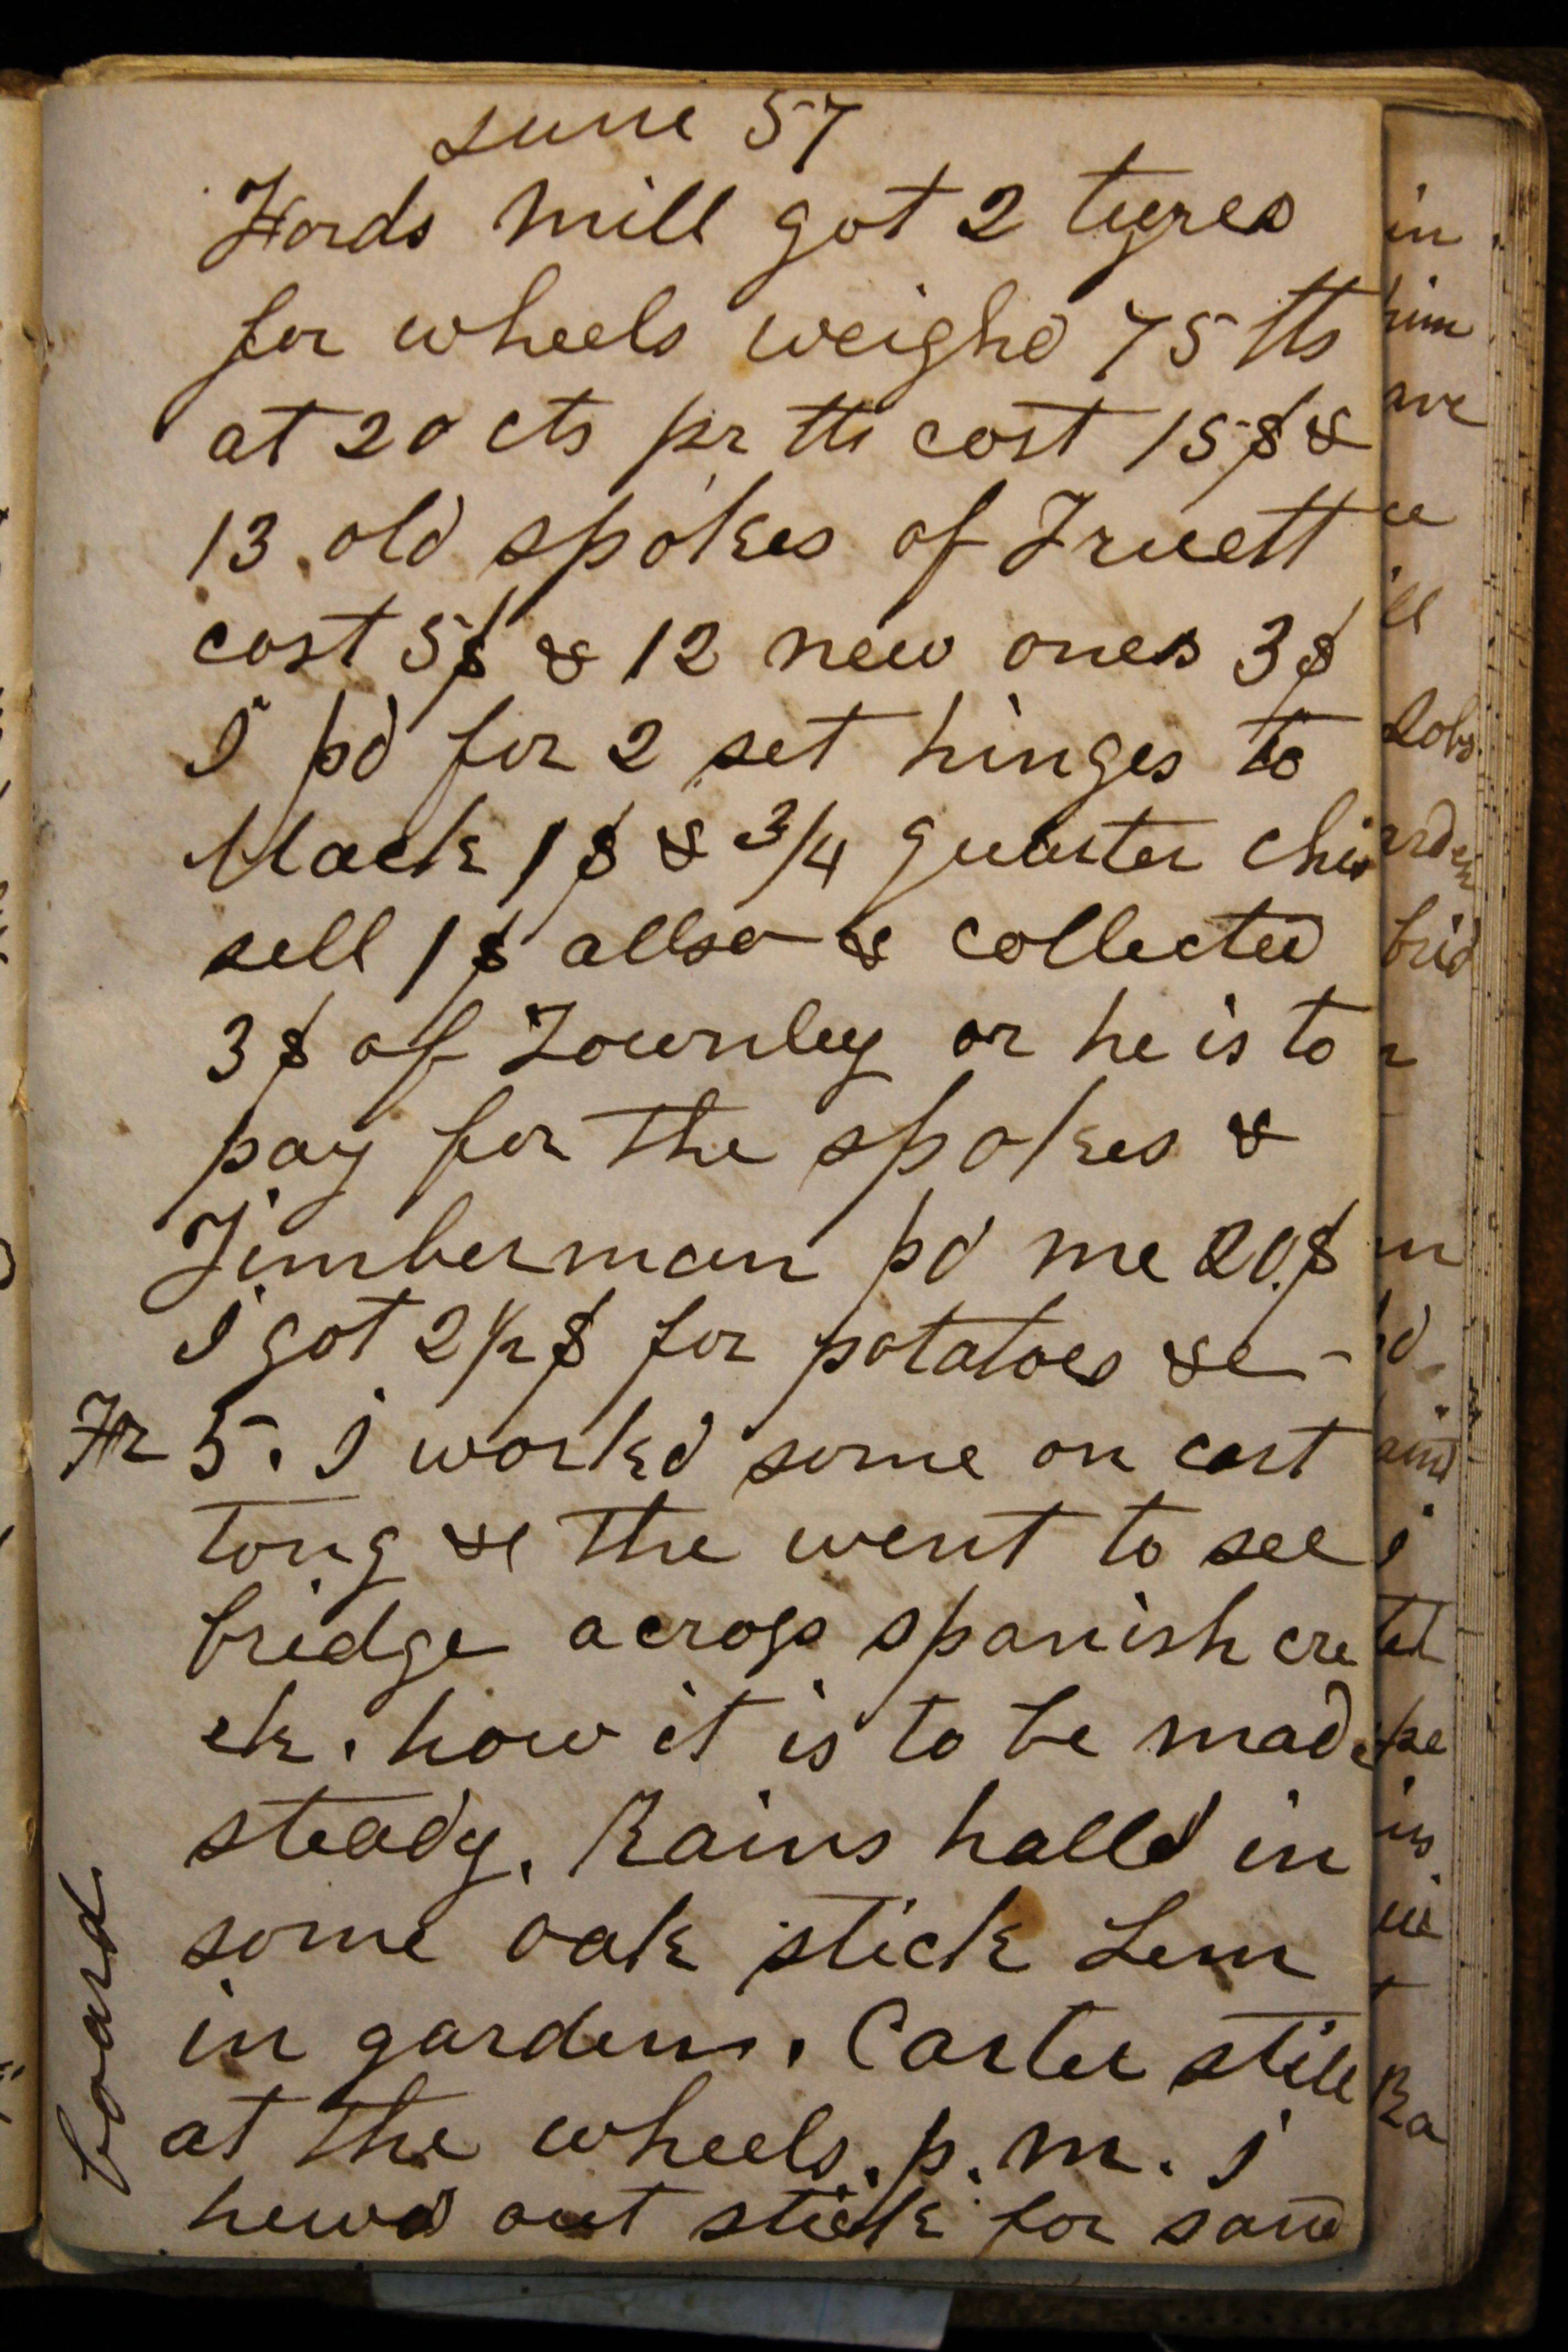 June 57
Fords mill got 2 tyres
for wheels weighd 75 lbs
at 20 cts pr lb cost 15$ &
13 old spokes of Truett
cost 5$ & 12 new ones 3$
I pd for 2 set hinges to
Mack 1$ & 3/4 quarter chis
sell 1$ allso & collected
3$ of Townley or he is to
pay for the spokes &
Timberman pd me 20.$
I got 2 1/2 $ for potatoes &c -
Fr 5. I workd some on cart
tong & the went to see
bridge across spanish cre
ek. how it is to be made
steady. Rains halld in
some oak stick Lem
in garden. Carter still
at the wheels. p. m. I
hewd out stick for sand
board
in
him
ave
ill
arden
brid
in
pd
and
I
ted
in
Ra